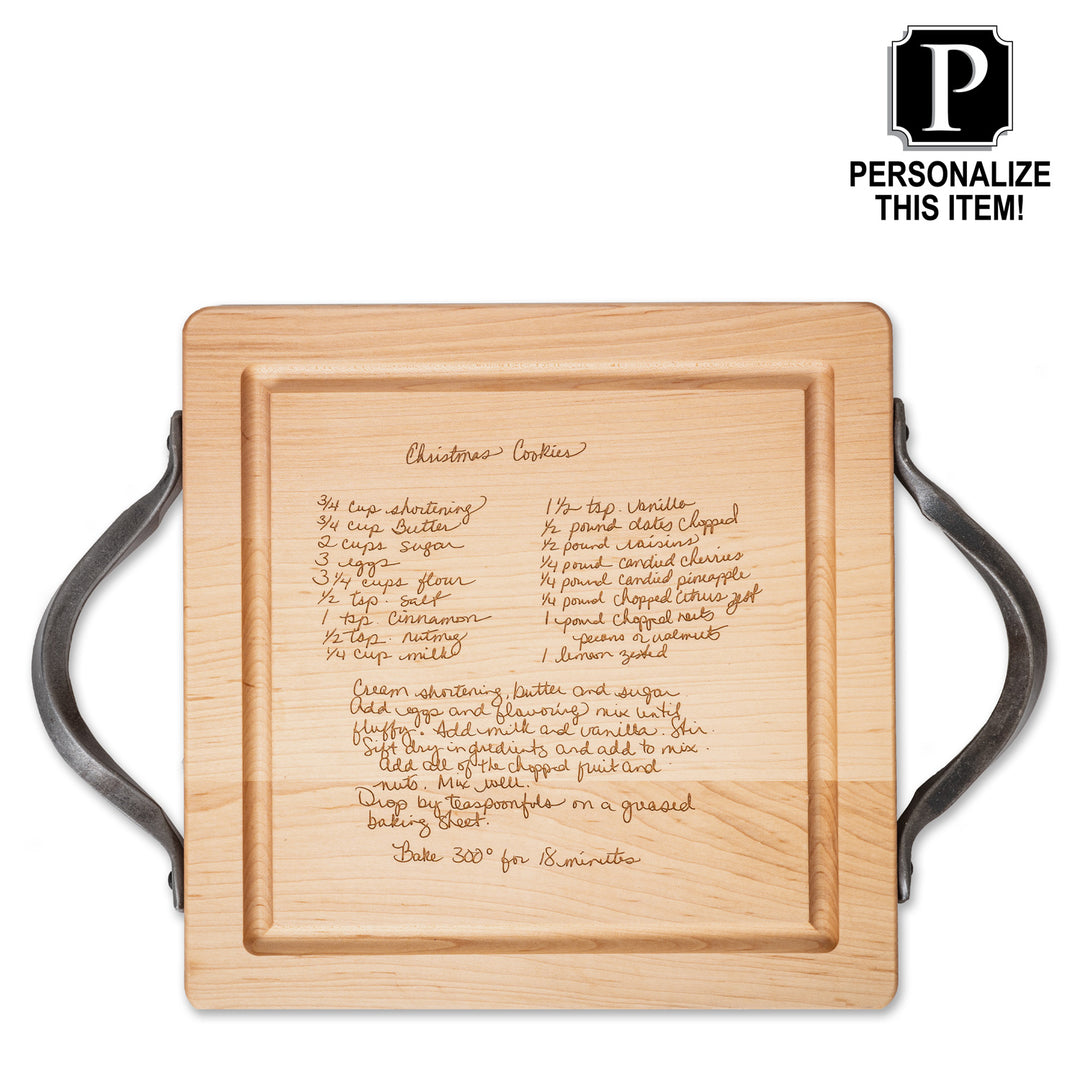 P
PERSONALIZE
THIS ITEM!
Christmas Cookies
3/4 cup shortening
3/4 cup Butter
2 cups sugar
3 eggs
3 1/4 cups flour
1/2 tsp. salt
1 tsp. Cinnamon
1/2 tsp. nutmeg
1/4 cup milk
1 1/2 tsp. vanilla
1/2 pound dates chopped
1/2 pound raisins
1/4 pound candied cherries
1/4 pound candied pineapple
1/4 pound chopped citrus zest
1 pound chopped nuts
pecans or walnuts
1 lemon zested
Cream shortening, butter and sugar.
Add eggs and flavoring mix until
fluffy. Add milk and vanilla. Stir.
Sift dry ingredients and add to mix.
Add all of the chopped fruit and
nuts. Mix well.
Drop by teaspoonfuls on a greased
baking sheet.
Bake 300° for 18 minutes